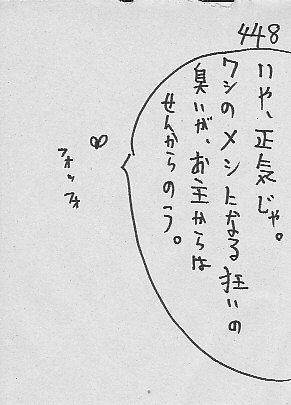 448
いや、正気じゃ。
ワシのメシになる狂いの
臭いが、お主からは
せんからのう。
フォッフォ